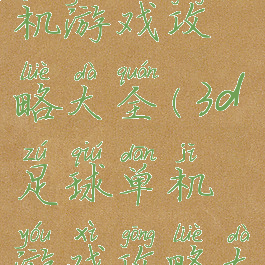 机游戏攻
lüè dà quán
略大全(3d
zú qiú dān jī
足球单机
yóu xì gōng lüè dà
游戏攻略大